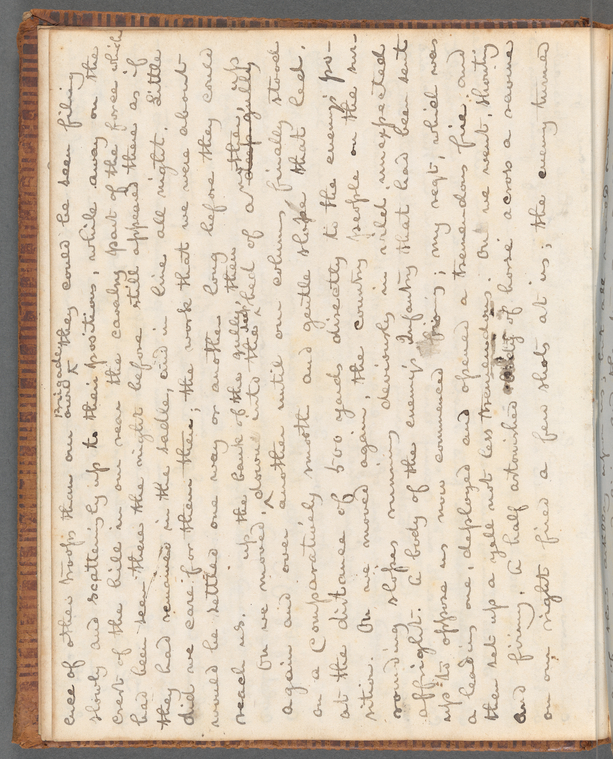 ence of other troops than our own Brigade they could be seen filing
slowly and scatteringly up to their positions, while away on the
crest of the hills in our rear the cavalry part of the force which
had been seen there the night before still appeared there as if
they had remained in the sadle, and in line all night. Little
did we care for them then; the work that we were about
would be settled one way or another long before they could
reach us.
On we moved, up the bank of the gully, then down into the deep bed of another, up
again and over another until our column finally stood
on a comparatively smooth and gentle slope that led,
at the distance of 500 yards directly to the enemy's po-
sition. On we moved again, the country people on the sur-
rounding slopes running deviously in wildest unexpected
affright. A body of the enemy's Infantry that had been sent
up to oppose us now commenced firing; my regt, which was
a leading one, deployed and opened a tremendous fire, and
then set up a yell not less tremendous. On we went, shouting
and firing. A half astonished body of horse across a ravine
on our right fired a few shots at us; the enemy turned